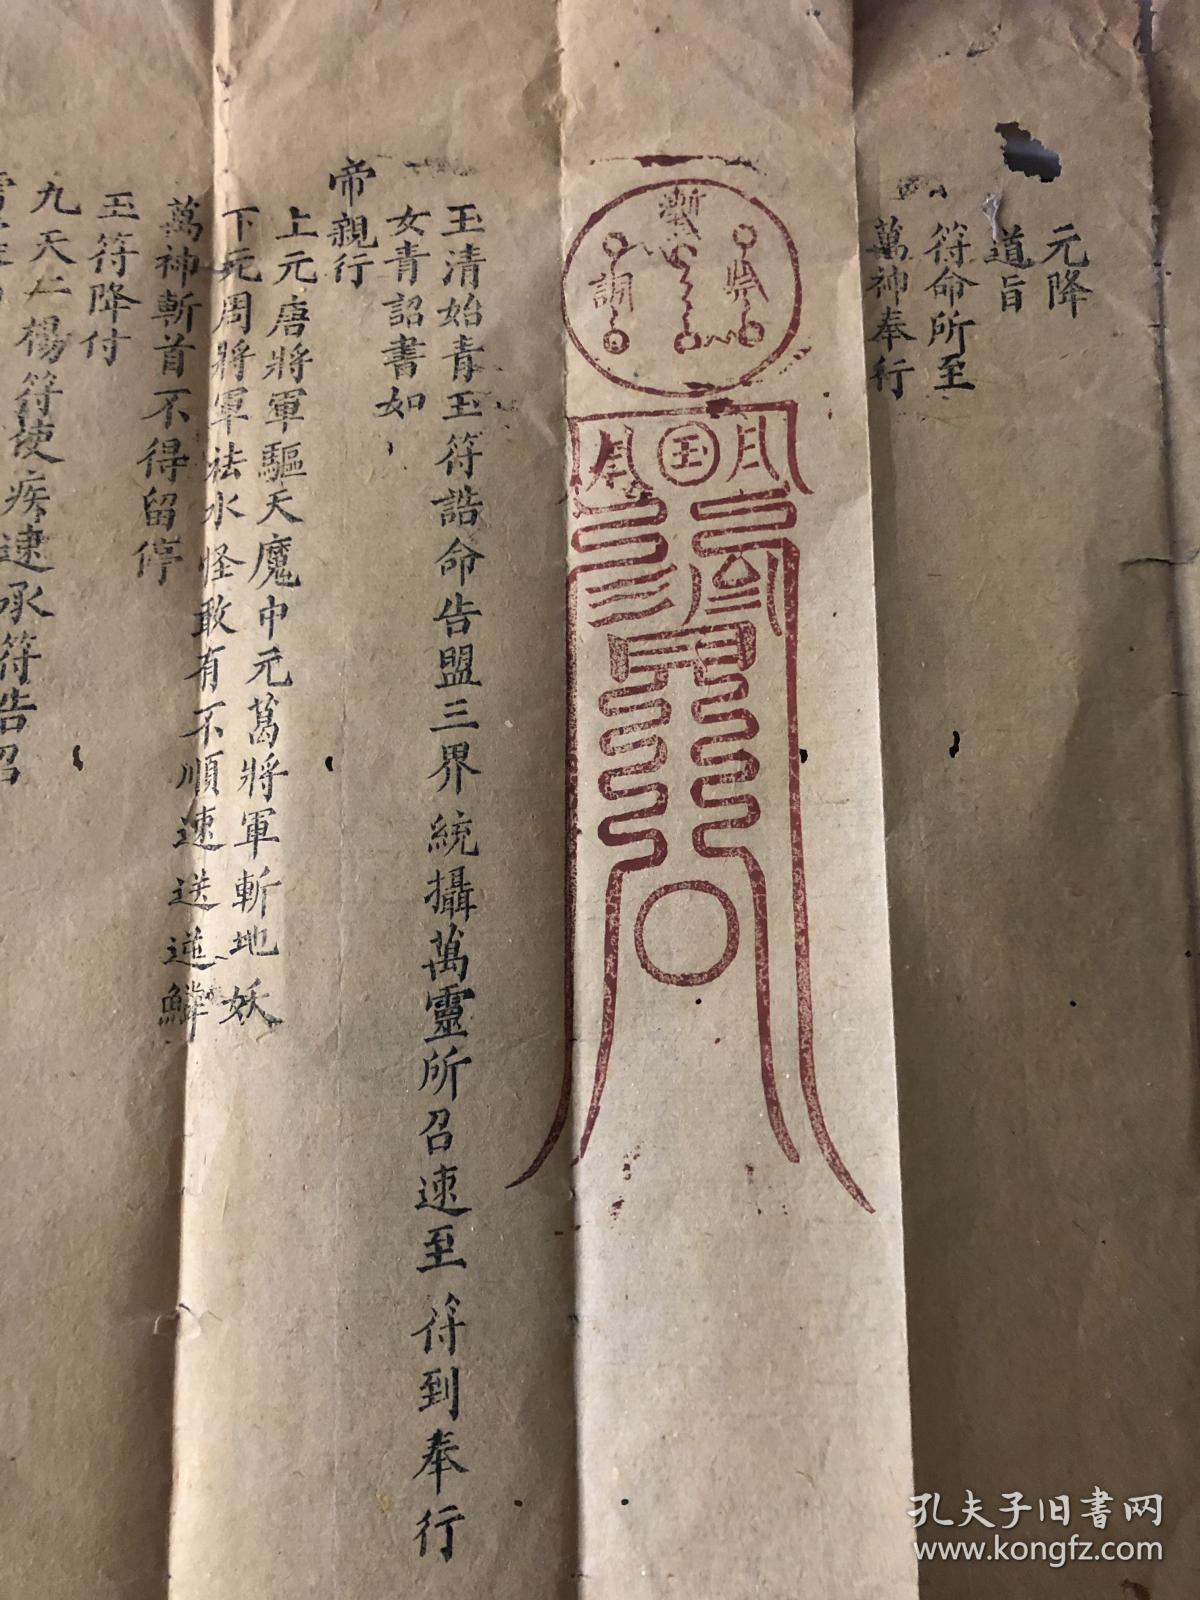 元降
道旨
符命所至
萬神奉行
玉
玉清始青玉符誥命告盟三界統攝萬靈所召速至符到奉行
女青詔書如
帝親行
上元唐將軍驅天魔中元葛將軍斬地妖
下元周將軍祛水怪敢有不順速送逆鱗
萬神斬首不得留停
玉符降付
九天仁楊符使疾速承符告召
孔夫子旧书网
www.kongfz.com